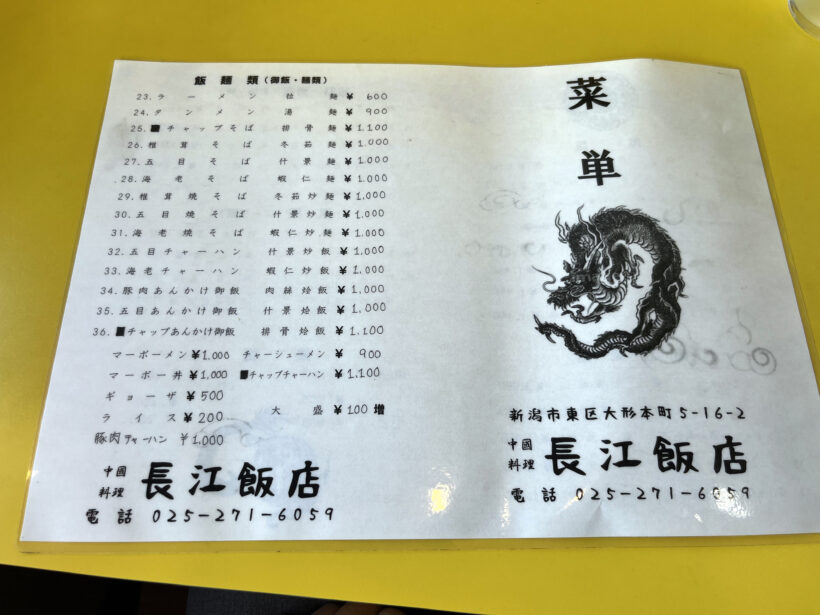 飯麺類(御飯・麺類)
23.ラーメン 拉麺 ¥600
24.タンメン 湯麺 ¥900
25.■チャップそば 排骨麺 ¥1,100
26.椎茸そば 冬茹麺 ¥1,000
27.五目そば 什景麺 ¥1,000
28.海老そば 蝦仁麺 ¥1,000
29.椎茸焼そば 冬茹炒麺 ¥1,000
30.五目焼そば 什景炒麺 ¥1,000
31.海老焼そば 蝦仁炒麺 ¥1,000
32.五目チャーハン 什景炒飯 ¥1,000
33.海老チャーハン 蝦仁炒飯 ¥1,000
34.豚肉あんかけ御飯 肉絲燴飯 ¥1,000
35.五目あんかけ御飯 什景燴飯 ¥1,000
36.■チャップあんかけ御飯 排骨燴飯 ¥1,100
マーボーメン ¥1,000 チャーシューメン ¥900
マーボー丼 ¥1,000 ■チャップチャーハン ¥1,100
ギョーザ ¥500
ライス ¥200 大盛 ¥100増
豚肉チャーハン ¥1,000
中國料理 長江飯店
電話 025-271-6059
菜単
新潟市東区大形本町5-16-2
中國料理 長江飯店
電話 025-271-6059